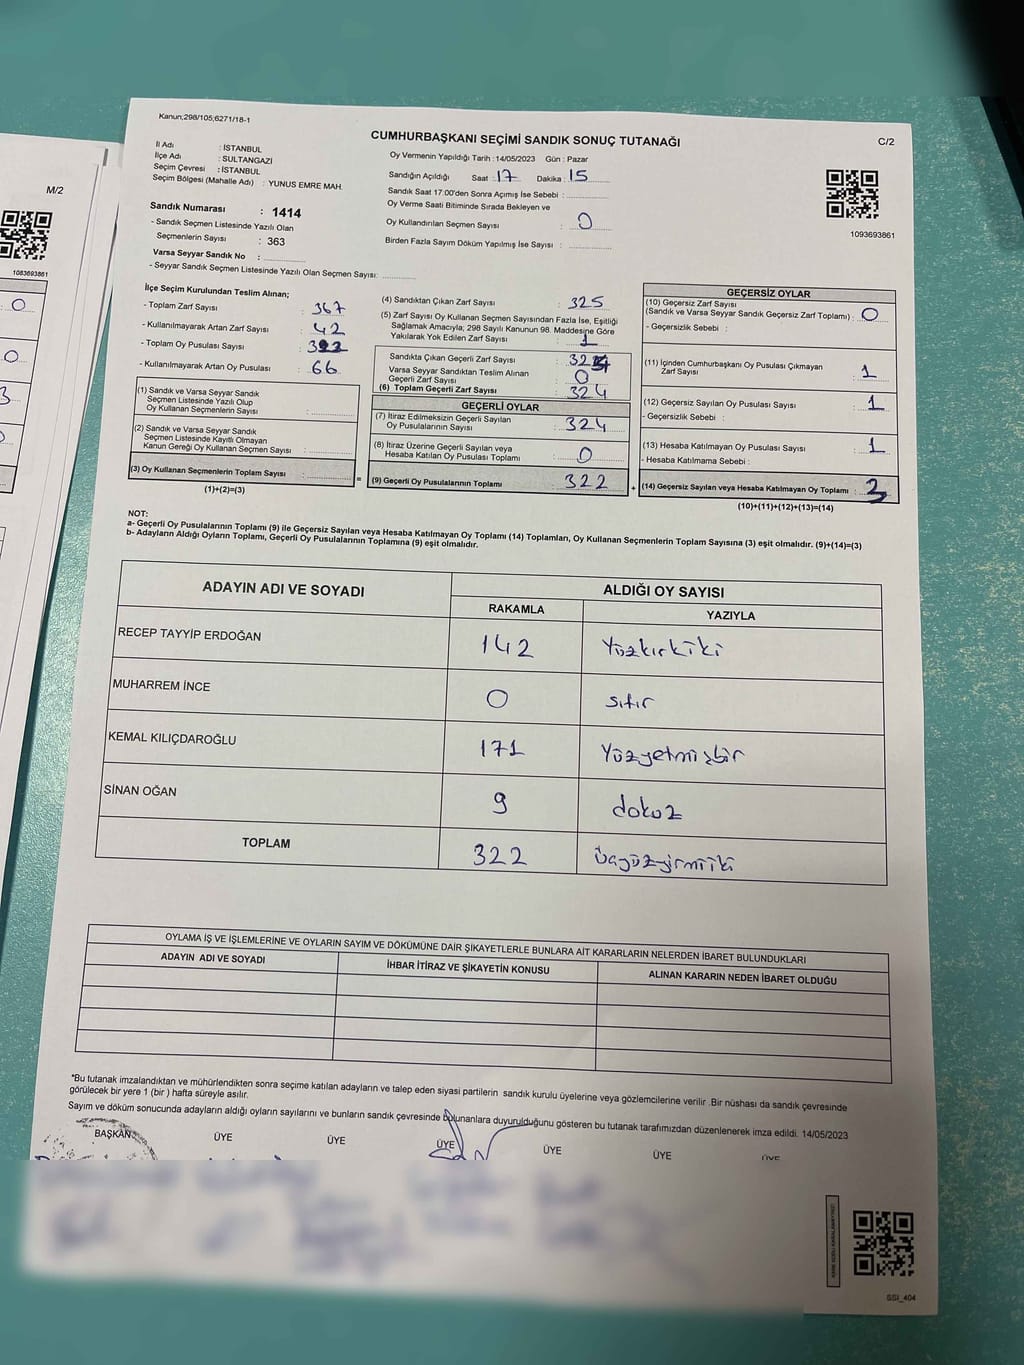 Kanun;298/105;6271/18-1
CUMHURBAŞKANI SEÇİMİ SANDIK SONUÇ TUTANAĞI
C/2
İl Adı : İSTANBUL
İlçe Adı : SULTANGAZİ
Seçim Çevresi : İSTANBUL
Seçim Bölgesi (Mahalle Adı) : YUNUS EMRE MAH.
Sandık Numarası : 1414
- Sandık Seçmen Listesinde Yazılı Olan
Seçmenlerin Sayısı : 363
Varsa Seyyar Sandık No :
- Seyyar Sandık Seçmen Listesinde Yazılı Olan Seçmen Sayısı:
Oy Vermenin Yapıldığı Tarih : 14/05/2023 Gün : Pazar
Sandığın Açıldığı Saat : 17 Dakika : 15
Sandık Saat 17:00'den Sonra Açımış İse Sebebi :
Oy Verme Saati Bitiminde Sırada Bekleyen ve
Oy Kullandırılan Seçmen Sayısı : 0
Birden Fazla Sayım Döküm Yapılmış İse Sayısı :
1093693861
M/2
1083693861
0
0
3
İlçe Seçim Kurulundan Teslim Alınan;
- Toplam Zarf Sayısı : 367
- Kullanılmayarak Artan Zarf Sayısı : 42
- Toplam Oy Pusulası Sayısı :
- Kullanılmayarak Artan Oy Pusulası : 66
(1) Sandık ve Varsa Seyyar Sandık
Seçmen Listesinde Yazılı Olup
Oy Kullanan Seçmenlerin Sayısı :
(2) Sandık ve Varsa Seyyar Sandık
Seçmen Listesinde Kayıtlı Olmayan
Kanun Gereği Oy Kullanan Seçmen Sayısı :
(3) Oy Kullanan Seçmenlerin Toplam Sayısı :
(1)+(2)=(3)
=
(4) Sandıktan Çıkan Zarf Sayısı : 325
(5) Zarf Sayısı Oy Kullanan Seçmen Sayısından Fazla İse, Eşitliği
Sağlamak Amacıyla; 298 Sayılı Kanunun 98. Maddesine Göre
Yakılarak Yok Edilen Zarf Sayısı : 1
Sandıkta Çıkan Geçerli Zarf Sayısı :
Varsa Seyyar Sandıktan Teslim Alınan
Geçerli Zarf Sayısı : 0
(6) Toplam Geçerli Zarf Sayısı : 324
GEÇERLİ OYLAR
(7) İtiraz Edilmeksizin Geçerli Sayılan
Oy Pusulalarının Sayısı : 324
(8) İtiraz Üzerine Geçerli Sayılan veya
Hesaba Katılan Oy Pusulası Toplamı : 0
(9) Geçerli Oy Pusulalarının Toplamı : 322
+
GEÇERSİZ OYLAR
(10) Geçersiz Zarf Sayısı
(Sandık ve Varsa Seyyar Sandık Geçersiz Zarf Toplamı) : 0
- Geçersizlik Sebebi :
(11) İçinden Cumhurbaşkanı Oy Pusulası Çıkmayan
Zarf Sayısı : 1
(12) Geçersiz Sayılan Oy Pusulası Sayısı : 1
- Geçersizlik Sebebi :
(13) Hesaba Katılmayan Oy Pusulası Sayısı : 1
- Hesaba Katılmama Sebebi :
(14) Geçersiz Sayılan veya Hesaba Katılmayan Oy Toplamı : 3
(10)+(11)+(12)+(13)=(14)
NOT:
a- Geçerli Oy Pusulalarının Toplamı (9) ile Geçersiz Sayılan veya Hesaba Katılmayan Oy Toplamı (14) Toplamları, Oy Kullanan Seçmenlerin Toplam Sayısına (3) eşit olmalıdır. (9)+(14)=(3)
b- Adayların Aldığı Oyların Toplamı, Geçerli Oy Pusulalarının Toplamına (9) eşit olmalıdır.
ADAYIN ADI VE SOYADI ALDIĞI OY SAYISI
RAKAMLA YAZIYLA
RECEP TAYYİP ERDOĞAN 142 Yüzkırkiki
MUHARREM İNCE 0 sıfır
KEMAL KILIÇDAROĞLU 171 Yüzyetmişbir
SİNAN OĞAN 9 dokuz
TOPLAM 322 üçyüzyirmiiki
OYLAMA İŞ VE İŞLEMLERİNE VE OYLARIN SAYIM VE DÖKÜMÜNE DAİR ŞİKAYETLERLE BUNLARA AİT KARARLARIN NELERDEN İBARET BULUNDUKLARI
ADAYIN ADI VE SOYADI İHBAR İTİRAZ VE ŞİKAYETİN KONUSU ALINAN KARARIN NEDEN İBARET OLDUĞU
*Bu tutanak imzalandıktan ve mühürlendikten sonra seçime katılan adayların ve talep eden siyasi partilerin sandık kurulu üyelerine veya gözlemcilerine verilir .Bir nüshası da sandık çevresinde
görülecek bir yere 1 (bir ) hafta süreyle asılır.
Sayım ve döküm sonucunda adayların aldığı oyların sayılarını ve bunların sandık çevresinde bulunanlara duyurulduğunu gösteren bu tutanak tarafımızdan düzenlenerek imza edildi. 14/05/2023
BAŞKAN ÜYE ÜYE ÜYE ÜYE ÜYE ÜYE
SSI_404